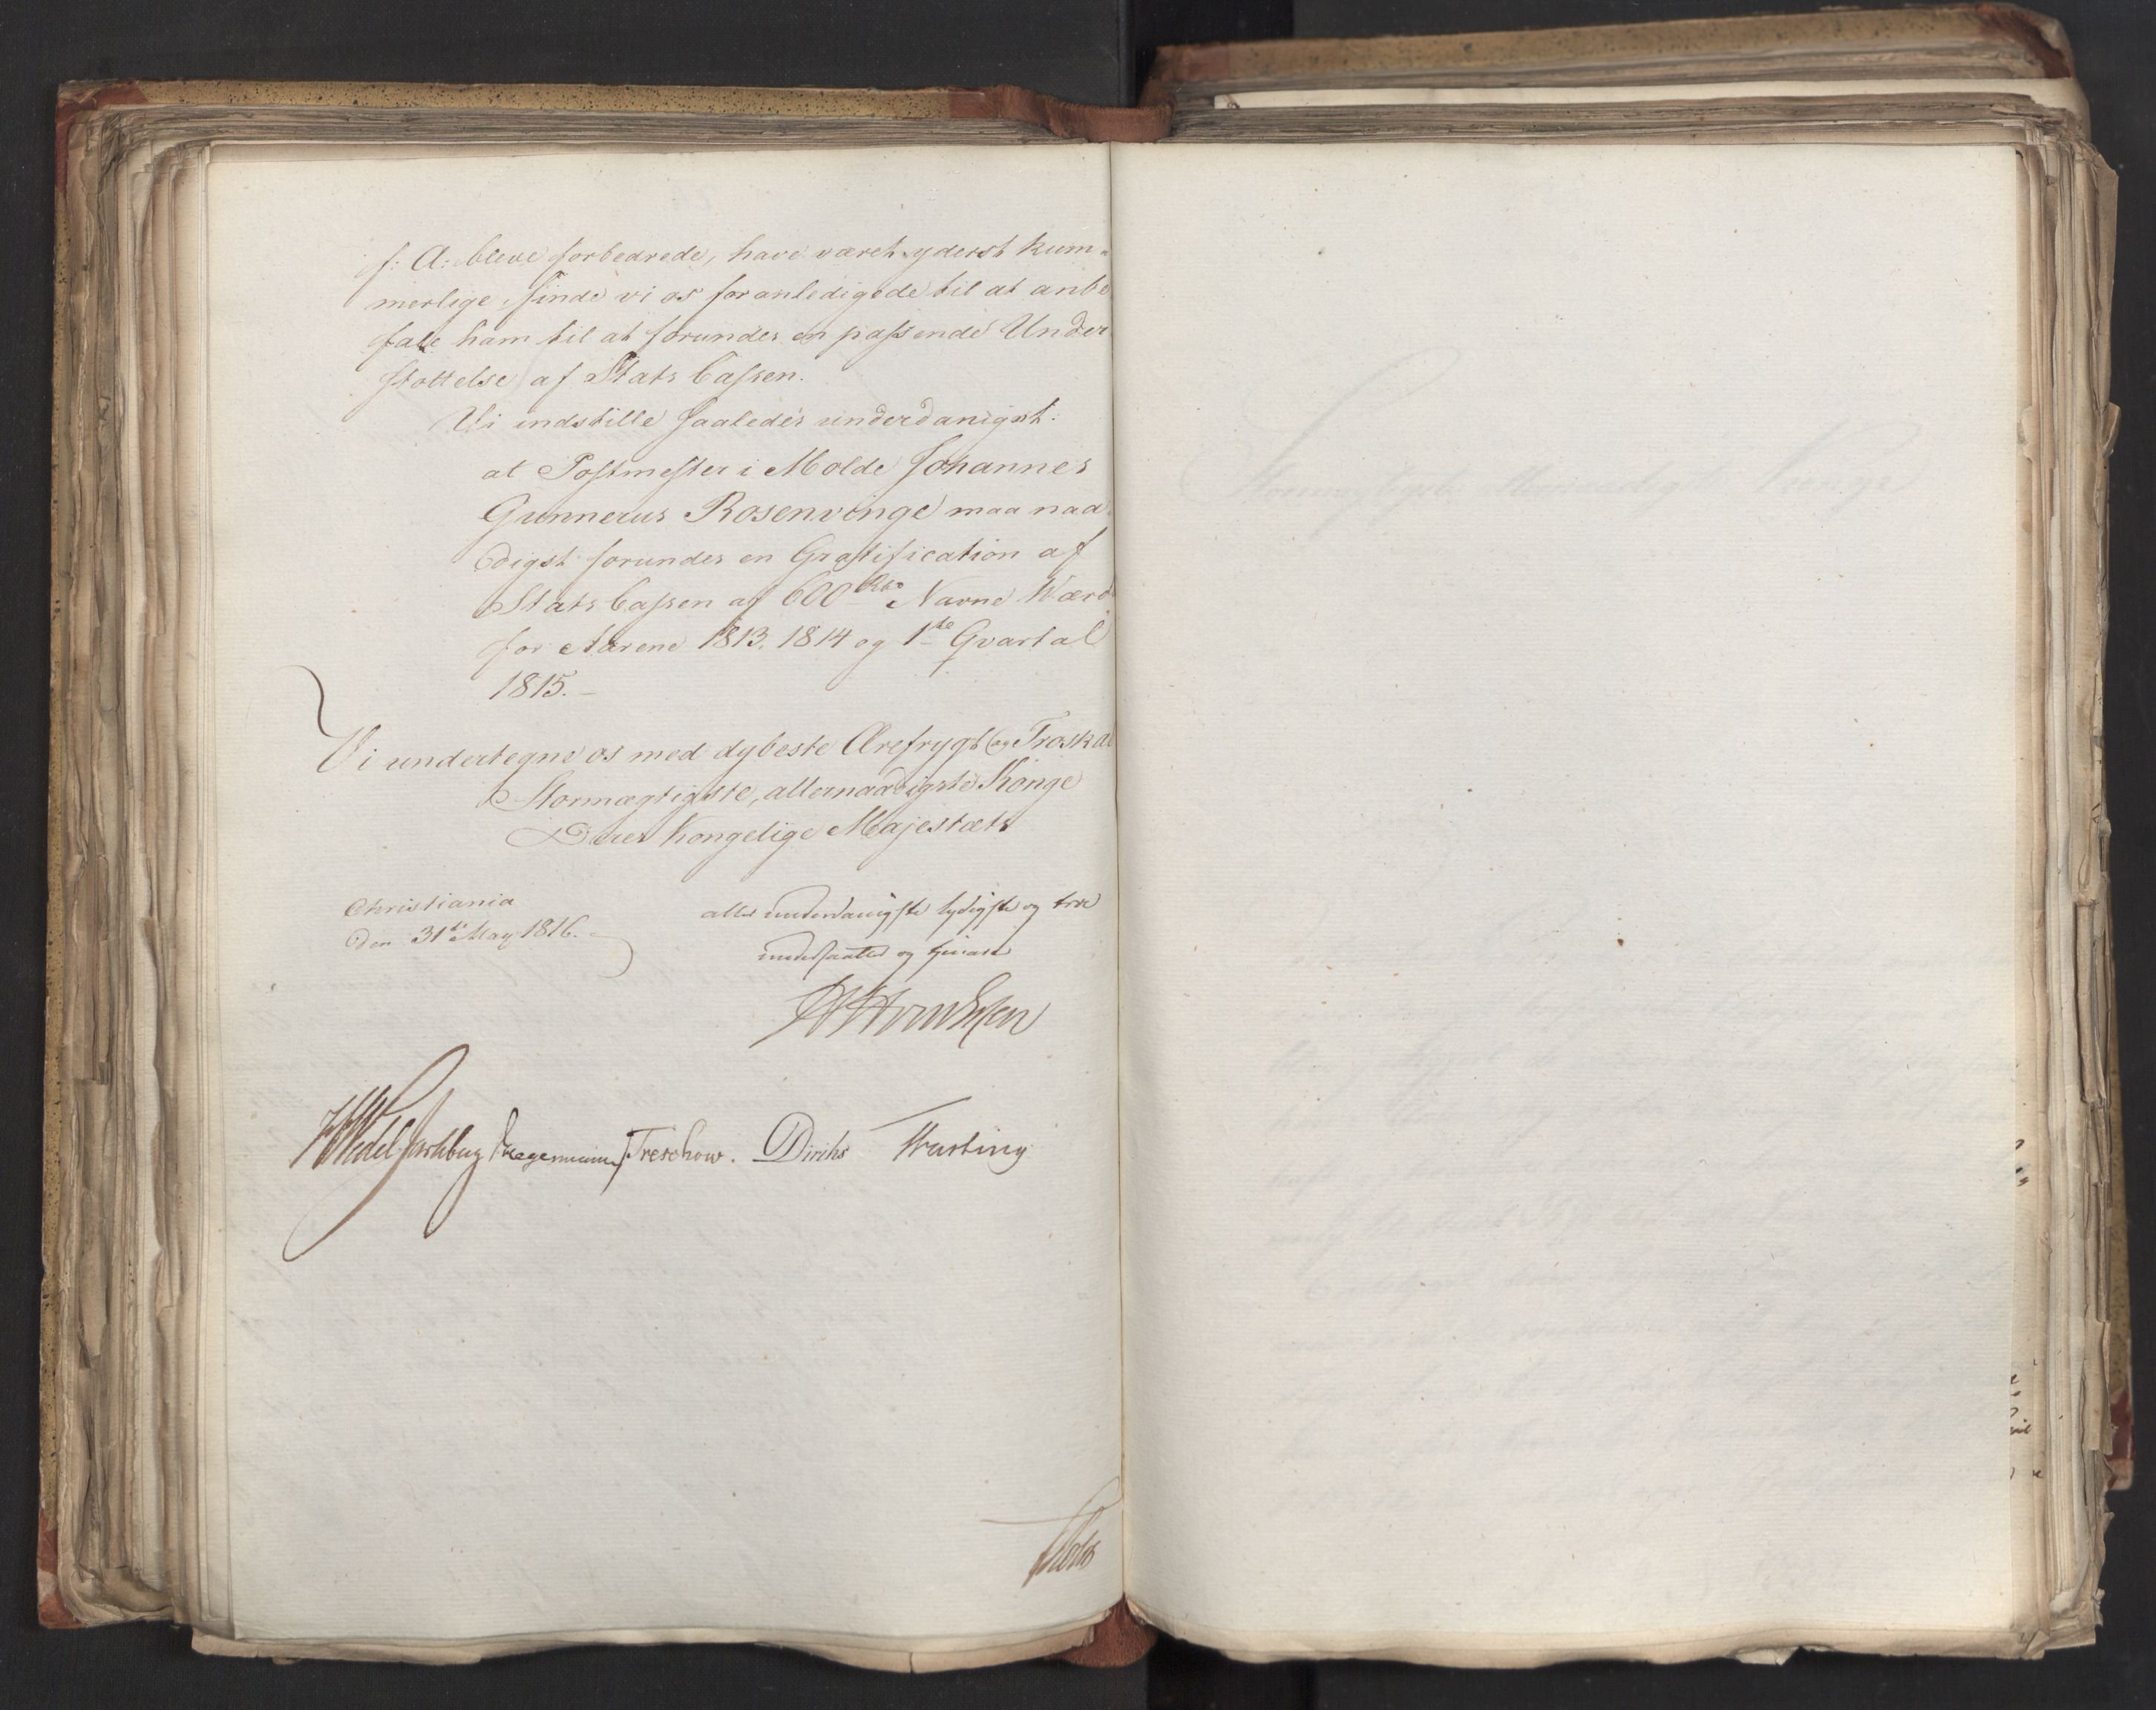 f: A: bleve forbedrede, have været yderst kum-
merlige, finde vi os foranledigede til at anbe
fale ham til at forundes en passende Under
støttelse af Stats Cassen.
Vi indstille saaledes underdanigst:
at Postmester i Molde Johannes
Gunnerus Rosenvinge maa naa
digst forundes en Gratification af
Stats Cassen af 600 Rbd Navne Værd
for Aarene 1813, 1814 og 1ste Qvartal
1815.
Vi undertegne os med dybeste Ærefrygt og Troskab
Stormægtigste, allernaadigste Konge
Deres Kongelige Majestæts
Christiania
den 31te May 1816.
aller underdanigste lydigste og troe
undersaatter og tjenere
HWedel Jarlsberg Hagerman Treschow. Diriks